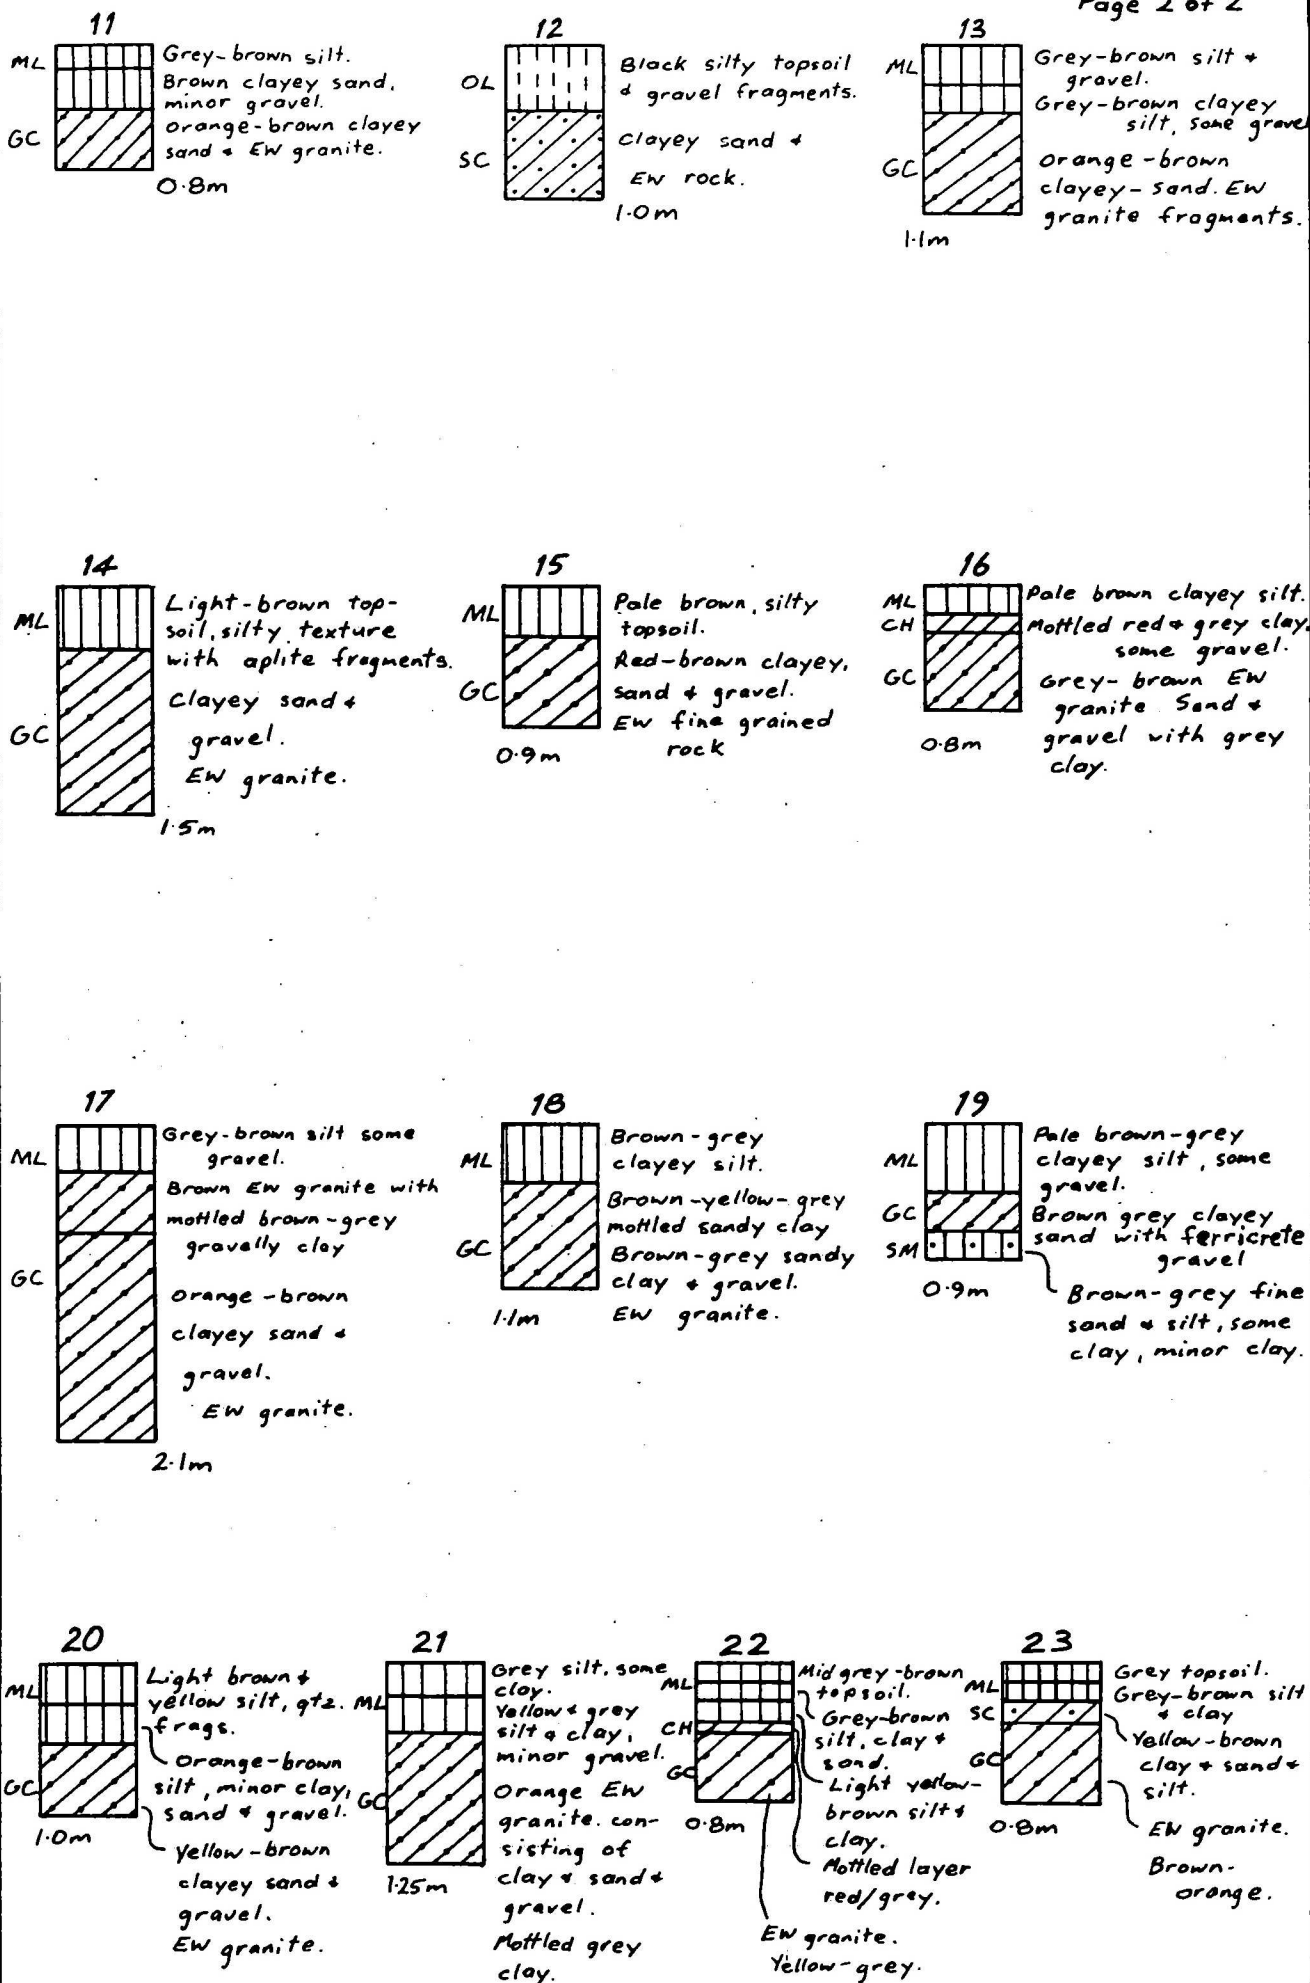 Page 2 of 2
11
ML
Grey-brown silt.
Brown clayey sand,
minor gravel.
GC
Orange-brown clayey
sand & EW granite.
0.8m
12
OL
Black silty topsoil
& gravel fragments.
SC
Clayey sand &
EW rock.
1.0m
13
ML
Grey-brown silt &
gravel.
Grey-brown clayey
silt, some gravel
GC
Orange-brown
clayey-sand. EW
granite fragments.
1.1m
14
ML
Light-brown top-
soil, silty texture
with aplite fragments.
GC
Clayey sand &
gravel.
EW granite.
1.5m
15
ML
Pale brown, silty
topsoil.
GC
Red-brown clayey,
sand & gravel.
EW fine grained
rock
0.9m
16
ML
Pale brown clayey silt.
CH
Mottled red & grey clay,
some gravel.
GC
Grey-brown EW
granite Sand &
gravel with grey
clay.
0.8m
17
ML
Grey-brown silt some
gravel.
Brown EW granite with
mottled brown-grey
gravelly clay
GC
Orange-brown
clayey sand &
gravel.
EW granite.
2.1m
18
ML
Brown-grey
clayey silt.
Brown-yellow-grey
mottled sandy clay
GC
Brown-grey sandy
clay & gravel.
EW granite.
1.1m
19
ML
Pale brown-grey
clayey silt, some
gravel.
GC
Brown grey clayey
sand with ferricrete
gravel
SM
0.9m
Brown-grey fine
sand & silt, some
clay, minor clay.
20
ML
Light brown &
yellow silt, qtz.
frags.
Orange-brown
silt, minor clay,
sand & gravel.
GC
1.0m
Yellow-brown
clayey sand &
gravel.
EW granite.
21
ML
Grey silt, some
clay.
Yellow & grey
silt & clay,
minor gravel.
GC
Orange EW
granite. con-
sisting of
clay & sand &
gravel.
Mottled grey
clay.
1.25m
22
ML
Mid grey-brown
topsoil.
Grey-brown
silt, clay &
sand.
CH
GC
Light yellow-
brown silt &
clay.
0.8m
Mottled layer
red/grey.
EW granite.
Yellow-grey.
23
ML
Grey topsoil.
Grey-brown silt
& clay
SC
Yellow-brown
clay & sand &
silt.
GC
0.8m
EW granite.
Brown-
orange.